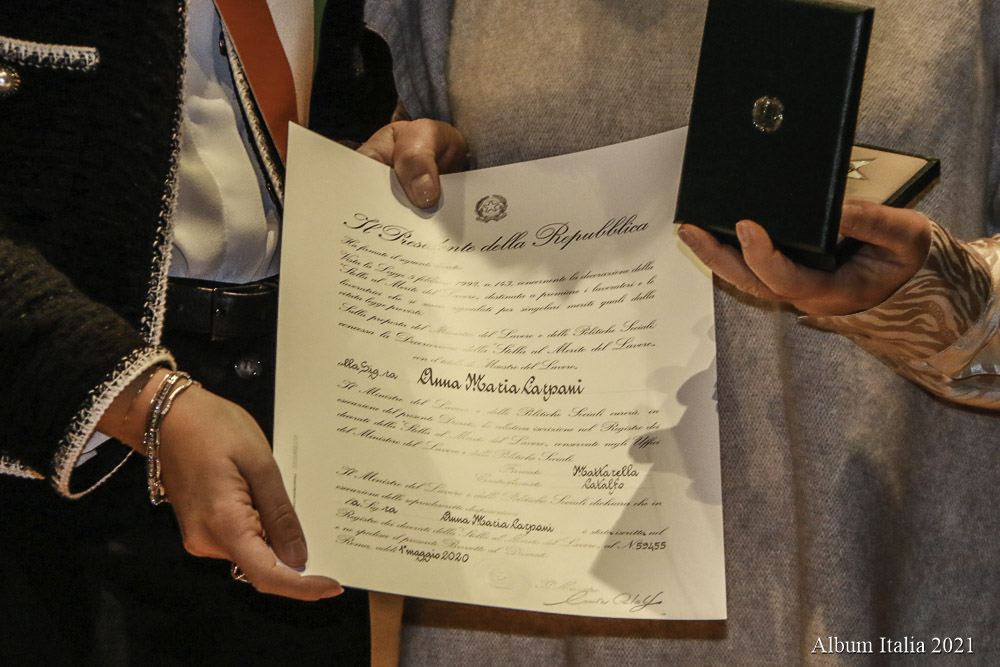 Il Presidente della Repubblica
Ha firmato il seguente decreto:
Vista la Legge 5 febbraio 1992, n. 143, concernente la decorazione della
"Stella al Merito del Lavoro", destinata a premiare i lavoratori e le
lavoratrici che si sono segnalati per singolari meriti quali dalla
citata legge previsti;
Sulla proposta del Ministro del Lavoro e delle Politiche Sociali;
concessa la Decorazione della "Stella al Merito del Lavoro",
con il titolo Maestro del Lavoro,
alla Sig.ra Anna Maria Carpani
Il Ministro del Lavoro e delle Politiche Sociali curerà, in
esecuzione del presente Decreto la relativa iscrizione nel Registro dei
decorati della "Stella al Merito del Lavoro", conservato negli Uffici
del Ministero del Lavoro e delle Politiche Sociali.
Firmato Mattarella
Controfirmato Catalfo
Il Ministro del Lavoro e delle Politiche Sociali dichiara che in
esecuzione delle sopraestese disposizioni
la Sig.ra Anna Maria Carpani è stata iscritta nel
Registro dei decorati della "Stella al Merito del Lavoro, al N. 59455
e ne spedisce il presente Brevetto al Decorato
Roma, addì 1° maggio 2020
Il Ministro
Album Italia 2021